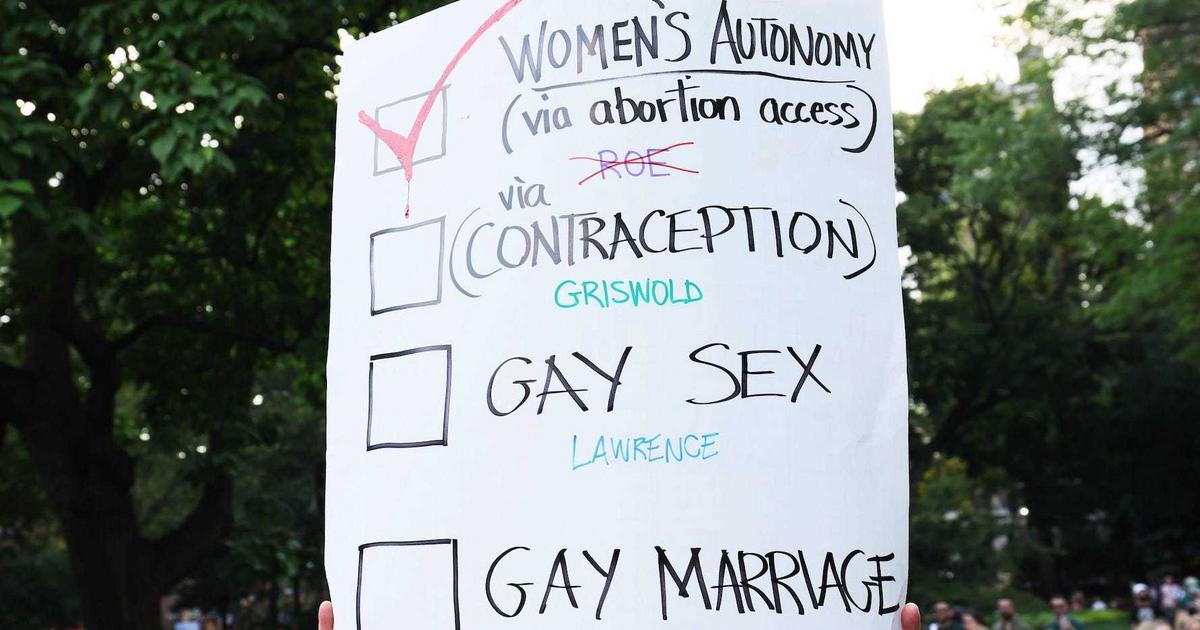 WOMEN'S AUTONOMY
(via abortion access)
ROE
via
(CONTRACEPTION)
GRISWOLD
GAY SEX
LAWRENCE
GAY MARRIAGE